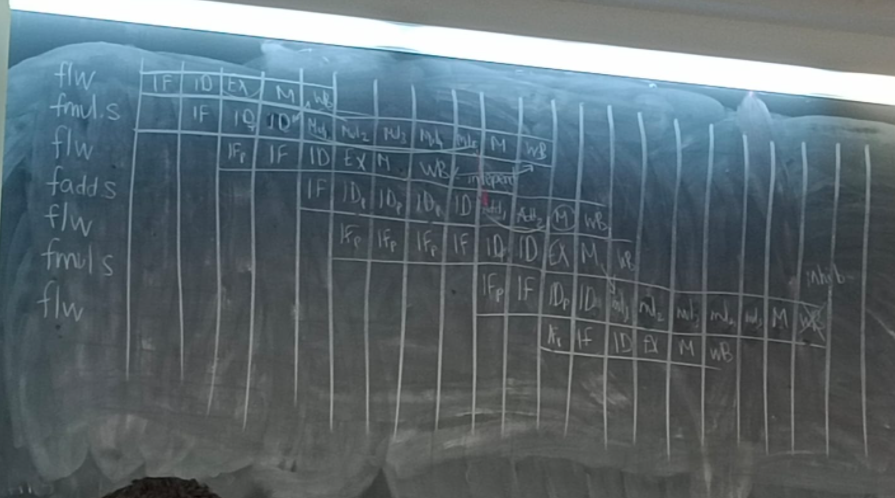 flw IF ID EX M WB
fmul.s IF IDp ID Mul1 Mul2 Mul3 Mul4 Mul5 M WB
flw IFp IF ID EX M WB
fadds IF IDp IDp IDp ID Add1 Add2 M WB
flw IFp IFp IFp IF IDp ID EX M WB
fmuls IFp IF IDp ID Mul1 Mul2 Mul3 Mul4 Mul5 M WB
flw IFp IF ID EX M WB